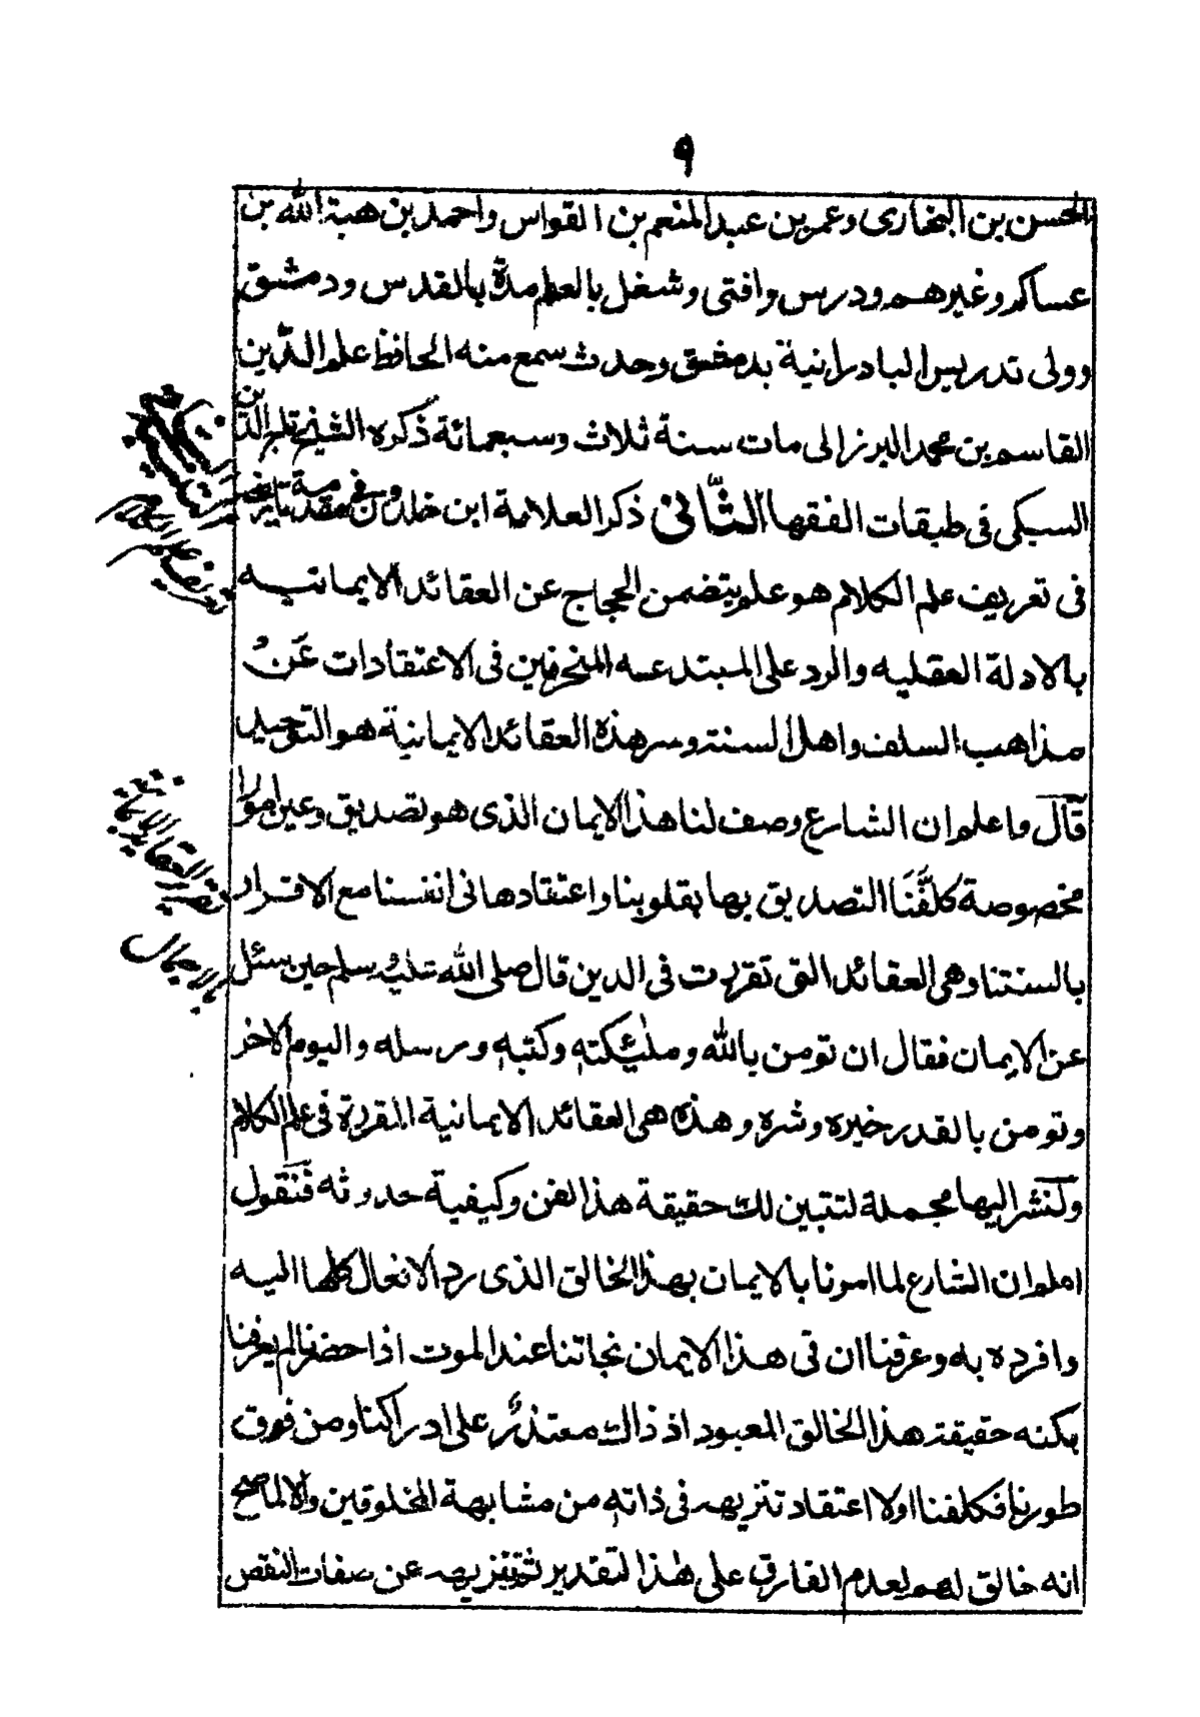 ٩
الحسن بن البخارى وعمر بن عبد المنعم بن القواس واحمد بن هبة الله بن
عساكر وغيرهم ودرس وافتى وشغل بالعلم مدة بالقدس ودمشق
وولى تدريس البادرانية بدمشق وحدث سمع منه الحافظ علم الدين
القاسم بن محمد البرزالى مات سنة ثلاث وسبعمائة ذكره الشيخ تاج الدين
السبكى فى طبقات الفقها الثانى ذكر العلامة ابن خلدون فى مقدمة تاريخه
فى تعريف علم الكلام هو علم يتضمن الحجاج عن العقائد الايمانيه
بالادلة العقليه والرد على المبتدعه المنحرفين فى الاعتقادات عن
مذاهب السلف واهل السنة وسر هذه العقائد الايمانية هو التوحيد
قال ما علم ان الشارع وصف لنا هذا الايمان الذى هو تصديق وعين امورا
مخصوصة كلفنا التصديق بها بقلوبنا واعتقادها فى انفسنا مع الاقرار
بالسنتنا وهى العقائد التى تقررت فى الدين قال صلى الله عليه وسلم حين سئل
عن الايمان فقال ان تومن بالله وملئكته وكتبه ورسله واليوم الاخر
وتومن بالقدر خيره وشره وهذه هى العقائد الايمانية المقررة فى علم الكلام
ولنشر اليها مجملة لتتبين لك حقيقة هذا الفن وكيفية حدوثه فنقول
اعلم ان الشارع لما امرنا بالايمان بهذا الخالق الذى رد الافعال كلها اليه
وافرده به وعرفنا ان فى هذا الايمان نجاتنا عند الموت اذا حضرنا لم يعرفنا
بكنه حقيقة هذا الخالق المعبود اذ ذاك متعذر على ادراكنا ومن فوق
طورنا فكلفنا اولا اعتقاد تنزيهه فى ذاته من مشابهة المخلوقين والا لما صح
انه خالق لهم لعدم الفارق على هذا التقدير ثم تنزيهه عن صفات النقص
تعريف علم الكلام
العقايد الايمانية
بالاجمال